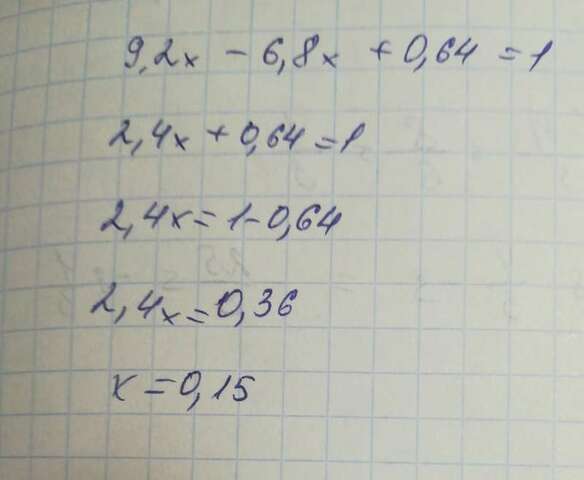 9,2x - 6,8x + 0,64 = 1
2,4x + 0,64 = 1
2,4x = 1 - 0,64
2,4x = 0,36
x = 0,15